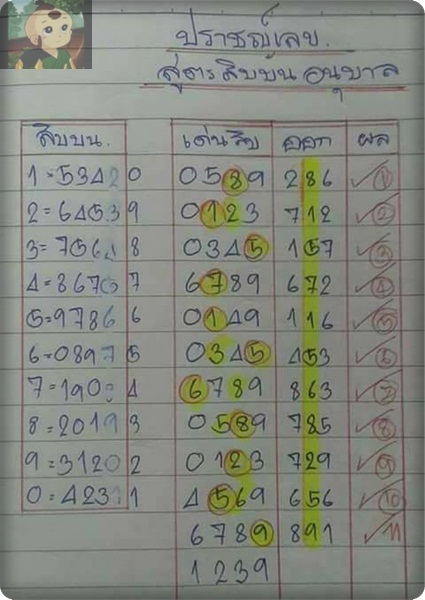 ปราชญ์เลข.
สูตรสิบบน อนุบาล
สิบบน. เด่นสิบ ออก ผล
1=53420 0589 286 ✓1
2=64539 0123 712 ✓2
3=7564 8 0345 157 ✓3
4=8670 7 6789 672 ✓4
5=9786 6 0149 116 ✓5
6=0897 5 0345 453 ✓6
7=190 4 6789 863 ✓7
8=2019 3 0589 785 ✓8
9=3120 2 0123 729 ✓9
0=423 1 4569 656 ✓10
6789 891 ✓11
1239